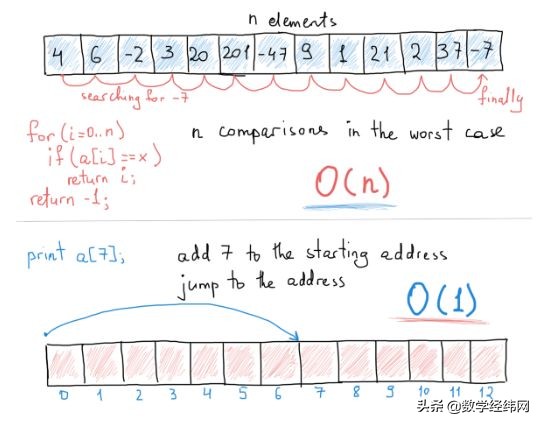 n elements
4 6 -2 3 20 201 -47 9 1 21 2 37 -7
searching for -7
finally
for (i=0..n)
if (a[i]==x)
return i;
return -1;
n comparisons in the worst case
O(n)
print a[7];
add 7 to the starting address
jump to the address
O(1)
0 1 2 3 4 5 6 7 8 9 10 11 12
头条 @数学经纬网